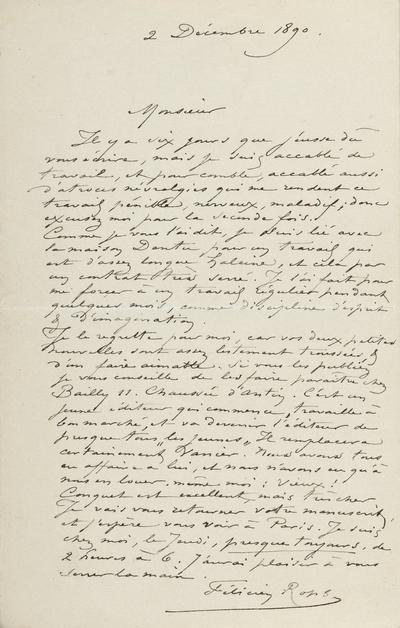 2 Décembre 1890.
Monsieur
Il y a six jours que j'eusse dû
vous écrire, mais je suis accablé de
travail, et pour comble, accablé aussi
d'atroces névralgies qui me rendent ce
travail pénible, nerveux, maladif; donc
excusez moi pour la seconde fois.
Comme je vous l'ai dit, je suis lié avec
la maison Dentu pour un travail qui
est d'assez longue haleine, et cela par
un contrat très serré. Je l'ai fait pour
me forcer à un travail régulier pendant
quelques mois, comme discipline d'esprit
& d'imagination.
Je le regrette pour moi, car vos deux petites
nouvelles sont assez lestement troussées, &
d'un faire aimable. Si vous les publiez
je vous conseille de les faire paraître chez
Bailly 11. Chaussée d'Antin. C'est un
jeune éditeur qui commence, travaille à
bon marché, et va devenir l'éditeur de
presque tous "les jeunes". Il remplacera
certainement Vanier. Nous avons tous
eu affaire à lui, et nous n'avons eu qu'à
nous en louer. même moi: vieux!
Conquet est excellent, mais trop cher
Je vais vous retourner votre manuscrit,
et j'espère vous voir à Paris. Je suis
chez moi, le Jeudi, presque toujours, de
2 heures à 6. J'aurai plaisir à vous
serrer la main.
Félicien Rops